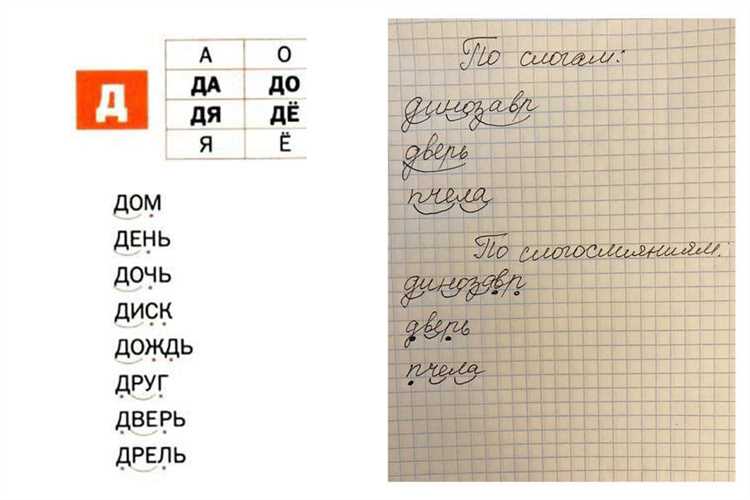 Д
А О
ДА ДО
ДЯ ДЁ
Я Ё
ДОМ
ДЕНЬ
ДОЧЬ
ДИСК
ДОЖДЬ
ДРУГ
ДВЕРЬ
ДРЕЛЬ
По слогам:
динозавр
дверь
пчела
По слогослияниям:
динозавр
дверь
пчела